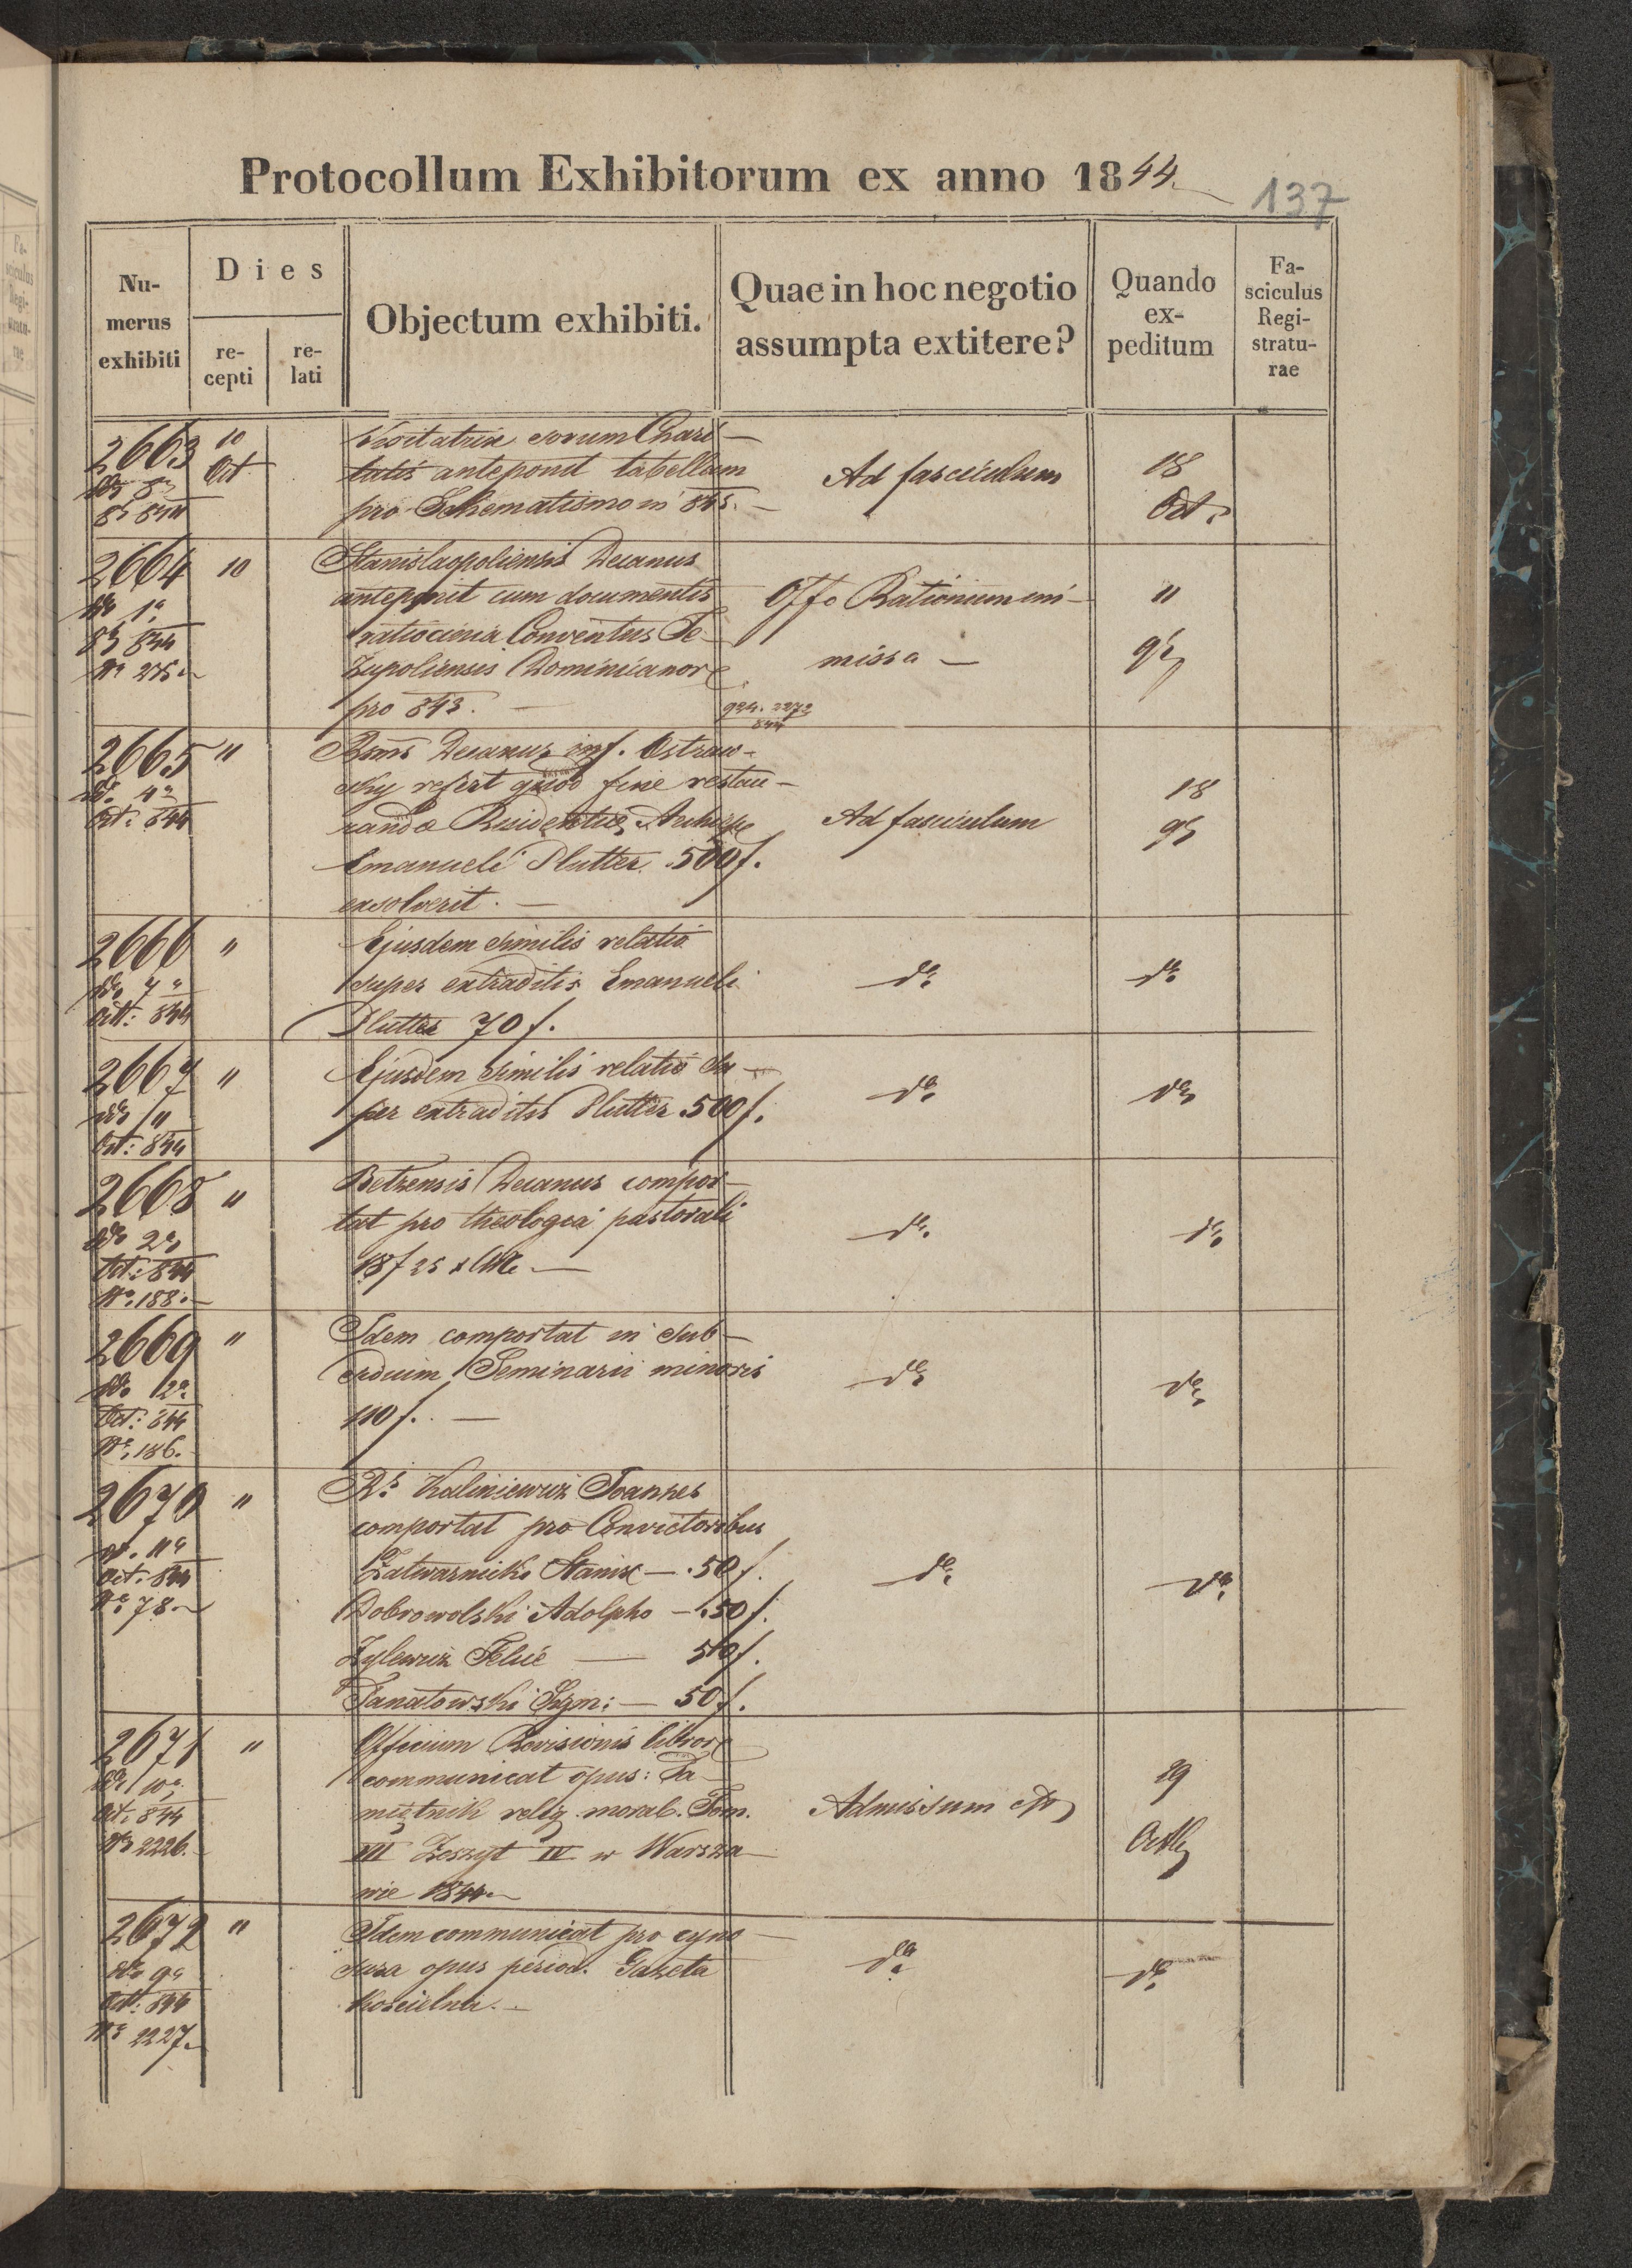 Protocollum Exhibitorum ex anno 1844
137
Numerus exhibiti
Dies
recepti
relati
Objectum exhibiti.
Quae in hoc negotio assumpta extitere?
Quando expeditum
Fasciculus Registraturae
2663 10 Oct
sororum Chari-
tatis anteponit tabellam
pro Schematismo in 845.
Ad fasciculum
18
Oct.
2664 10
ddo 1a
8b 844
No 275
Stanislaopoliensis Decanus
anteponit cum documentis
ratiocinia Conventus Je-
zupoliensis Dominicanor
pro 843.
Offo Rationum mi-
missa
11
2665 "
ddo 4a
Oct: 844
Decanus inf. Ostrow-
sky refert quod fine restau-
randae Residentiae
Emanueli Plutter 500 f.
exsolverit.
Ad fasciculum
18
2666 "
ddo 7a
Oct: 844
Ejusdem similis relatio
super extraditis Emanueli
Plutter 70 f.
do
do
2667 "
ddo 11
Oct: 844
Ejusdem similis relatio su-
per extraditis Plutter 500 f.
do
do
2668 "
ddo 2a
Oct: 844
No 188.
Betzensis Decanus compor-
tat pro theologia pastorali
18 f 25 x CM
do
do
2669 "
ddo 2a
Oct: 844
No 186.
Idem comportat in sub-
sidium Seminarii minoris
110 f.
do
do
2670 "
dd. 11a
Oct. 844
No 78
Rs Kaliniewicz Joannes
comportat pro Convictoribus
Zatwarnicki Stanis — 50 f.
Dobrowolski Adolpho — 50 f.
Zylewicz Felici — 50 f.
Panatowski Szym: — 50 f.
do
do
2671 "
ddo 10a
Oct. 844
No 2226.
Officium Revisionis libror
communicat opus: Pa-
miętnik relig. moral. Tom.
VII Zeszyt IV w Warsza-
wie 1844
Admissum est
19
2672 "
ddo 9a
Oct: 844
No 2227
Idem communicat pro cyno-
sura opus period. Gazeta
Kościelna.
do
do